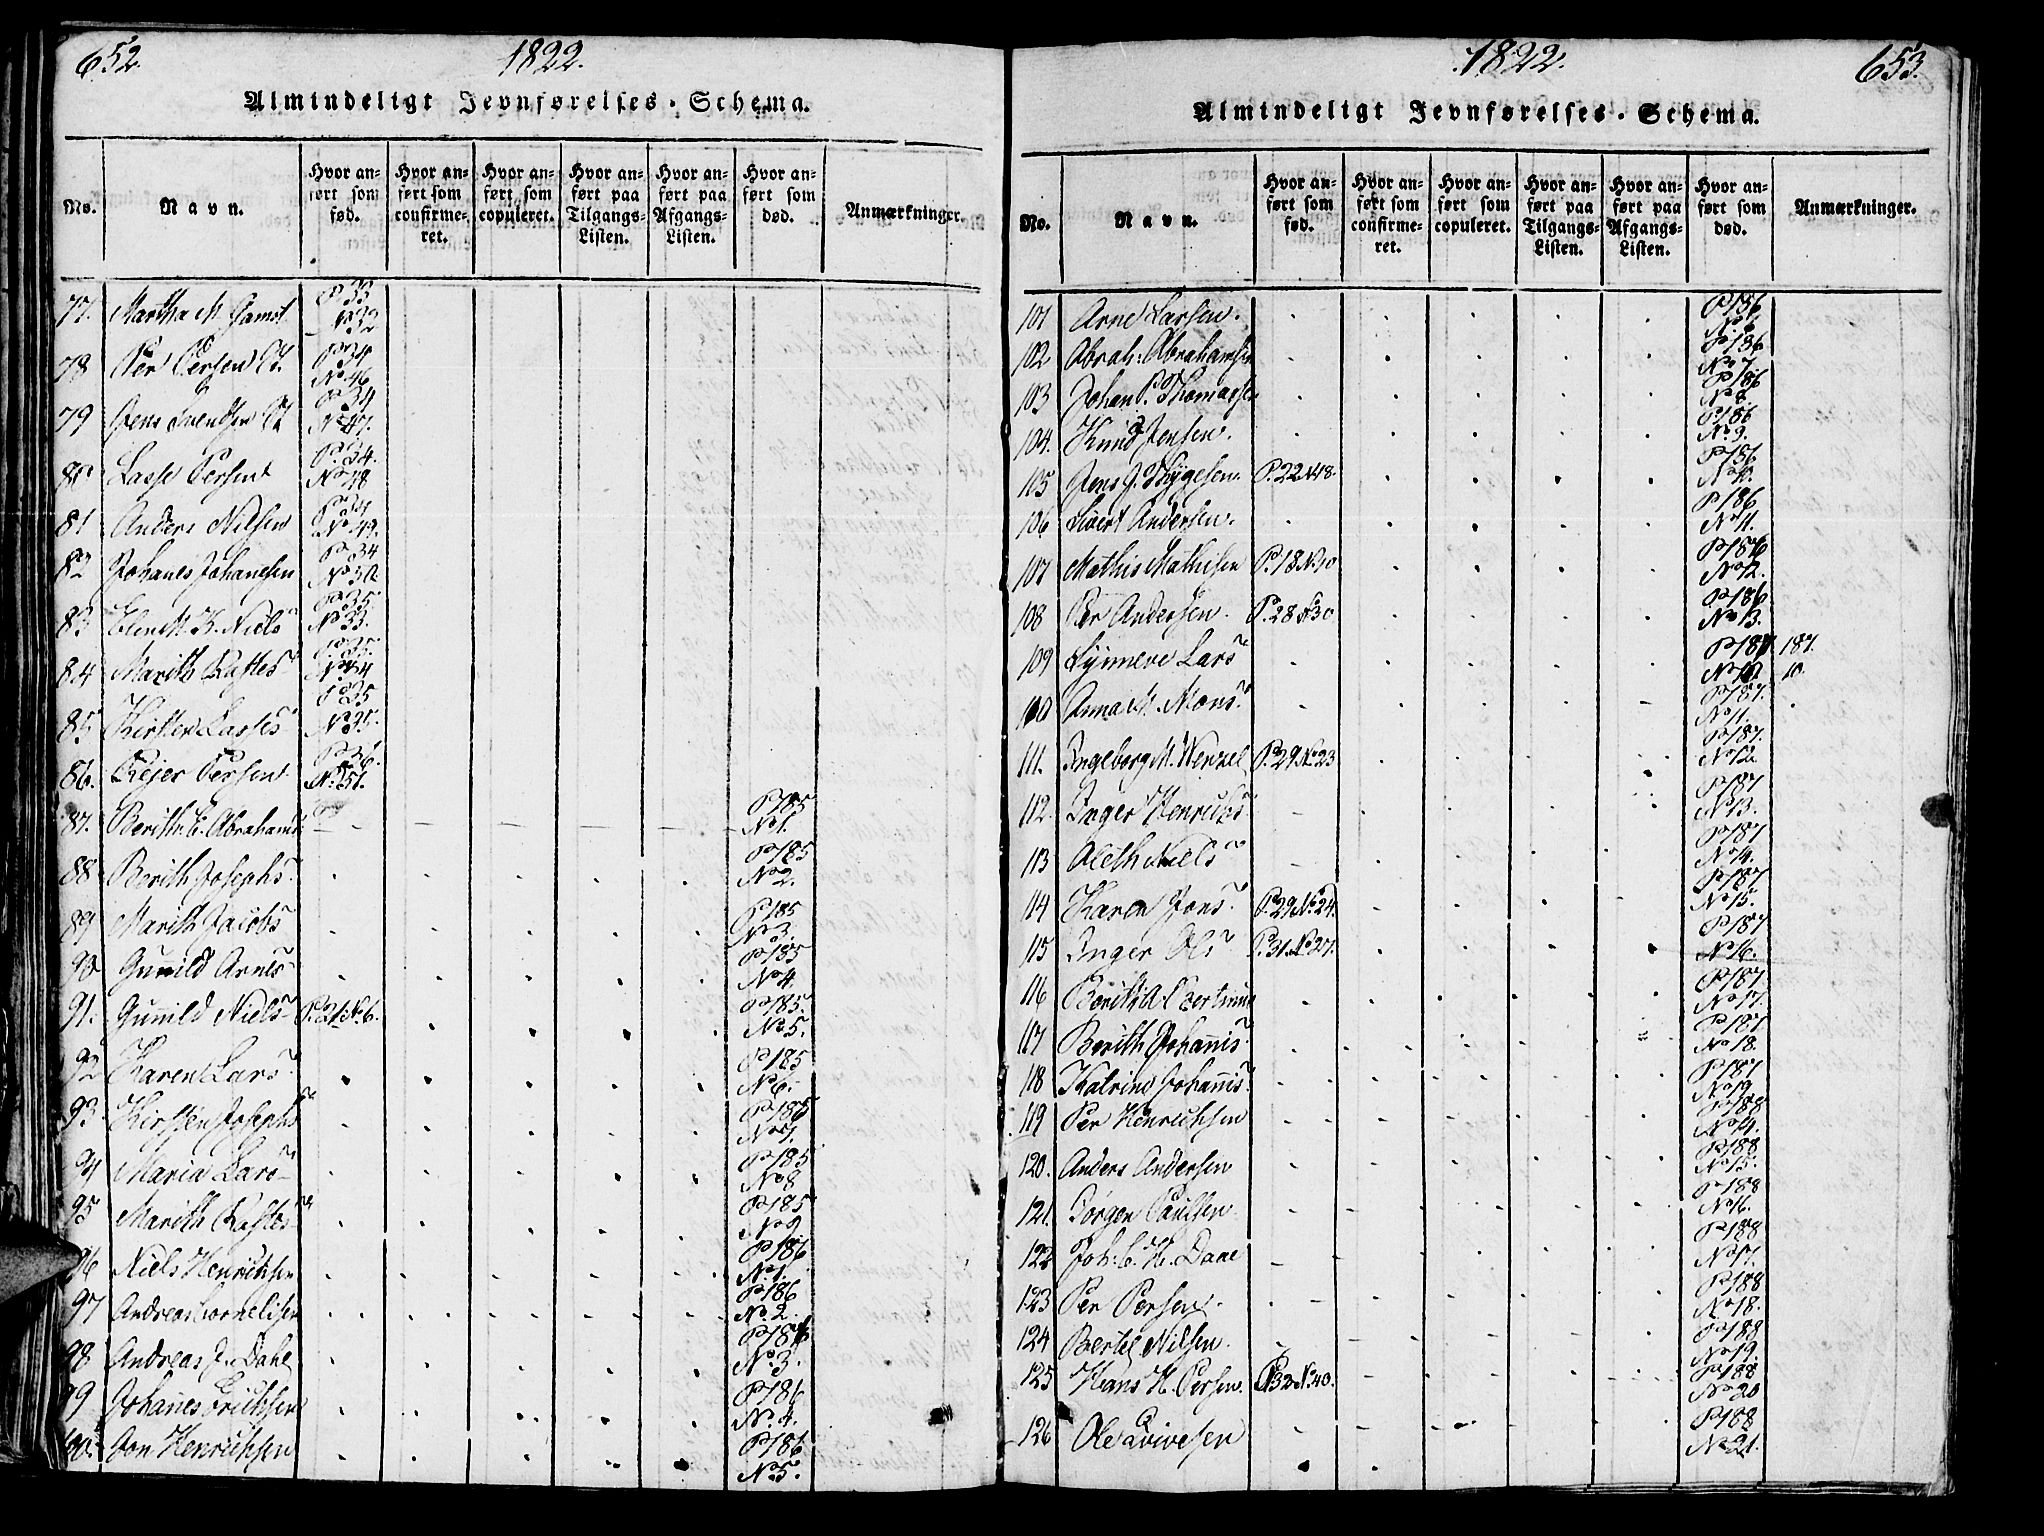 652.
1822.
Almindeligt Jevnførelses-Schema.
No.
Navn.
Hvor an-
ført som
fød.
Hvor an-
ført som
confirme-
ret.
Hvor an-
ført som
copuleret.
Hvor an-
ført paa
Tilgangs-
Listen.
Hvor an-
ført paa
Afgangs-
Listen.
Hvor an-
ført som
død.
Anmærkninger.
77. Martha M. P. 33
No 32
78 Per Persen P. 34
No 46
79 Jens Svendsen P. 34
No 47.
80 Lasse Persen P. 34.
No 48
81 Anders Nilsen P. 34
No 49.
82 Johanes Johanesen P. 34
No 50
83 Elen K. Niels P. 35.
No 33.
84 Marith P. 35.
No 34
85 Kirsten Lasses P. 35
No 35.
86. Pejer Persen P. 36.
No 51.
87. Berith E. Abrahams P 185
No 1.
88 Berith Josephs P 185
No 2.
89 Marith Jacobs P 185
No 3.
90 Gunild Arnes P 185
No 4.
91. Gunild Niels P. 21. No. 6. P 185.
No 5.
92 Karen Lars P 185
No 6.
93. Kirsten Josephs P 185
No 7.
94 Maria Lars P 185
No 8
95 Marith P 185
No 9
96 Niels Henrichsen P 186
No. 1.
97 Andreas Cornelisen P 186
No. 2.
98 Andreas J. Dahl P 186
No. 3.
99 Johanes Erichsen P 186
No. 4.
100. Jon Henrichsen P 186
No 5.
1822.
653.
Almindeligt Jevnførelses-Schema.
No.
Navn.
Hvor an-
ført som
fød.
Hvor an-
ført som
confirme-
ret.
Hvor an-
ført som
copuleret.
Hvor an-
ført paa
Tilgangs-
Listen.
Hvor an-
ført paa
Afgangs-
Listen.
Hvor an-
ført som
død.
Anmærkninger.
101 Arne Larsen. P 186
No. 6
102 Abrah: Abrahamsen P 186
No 7.
103 Johan P. Thomassen P 186
No 8.
104. Knud Jensen. P 186
No. 9.
105 Jens J. Thygesen. P. 22 No 18 P 186
No 10.
106 Sivert Andersen. P 186
No 11.
107 Mathis Mathisen P. 18 No. 10 P 186
No 12.
108 Per Andersen. P. 28 No 30 P 186
No 13.
109 Synneve Lars P 187. 187.
No 10 10.
110 Anna M. Mons P 187.
No 11.
111. Ingeborg M. Wenzel P. 29 No 23 P 187.
No 12.
112. Inger Henrichs P 187
No 13.
113 Aleth Niels P 187
No 14.
114 Karen Jons P. 29 No. 24. P 187
No 15.
115 Inger Ols P. 31 No 27. P 187
No 16.
116 Berith A. P 187.
No 17.
117 Berith Johanis P 187
No 18.
118 Katrine Johanis P 187
No 19
119 Per Henrichsen P 188
No 14.
120. Anders Andersen P 188
No 15.
121. Jørgen Paulsen P 188
No 16.
122 Joh: C. H. Dahl P 188
No 17.
123 Per Persen. P 188
No 18.
124 Bertel Nilsen. P 188
No 19.
125 Hans H. Persen. P. 32 No. 40. P 188
No 20
126 Ole P 188
No 21.